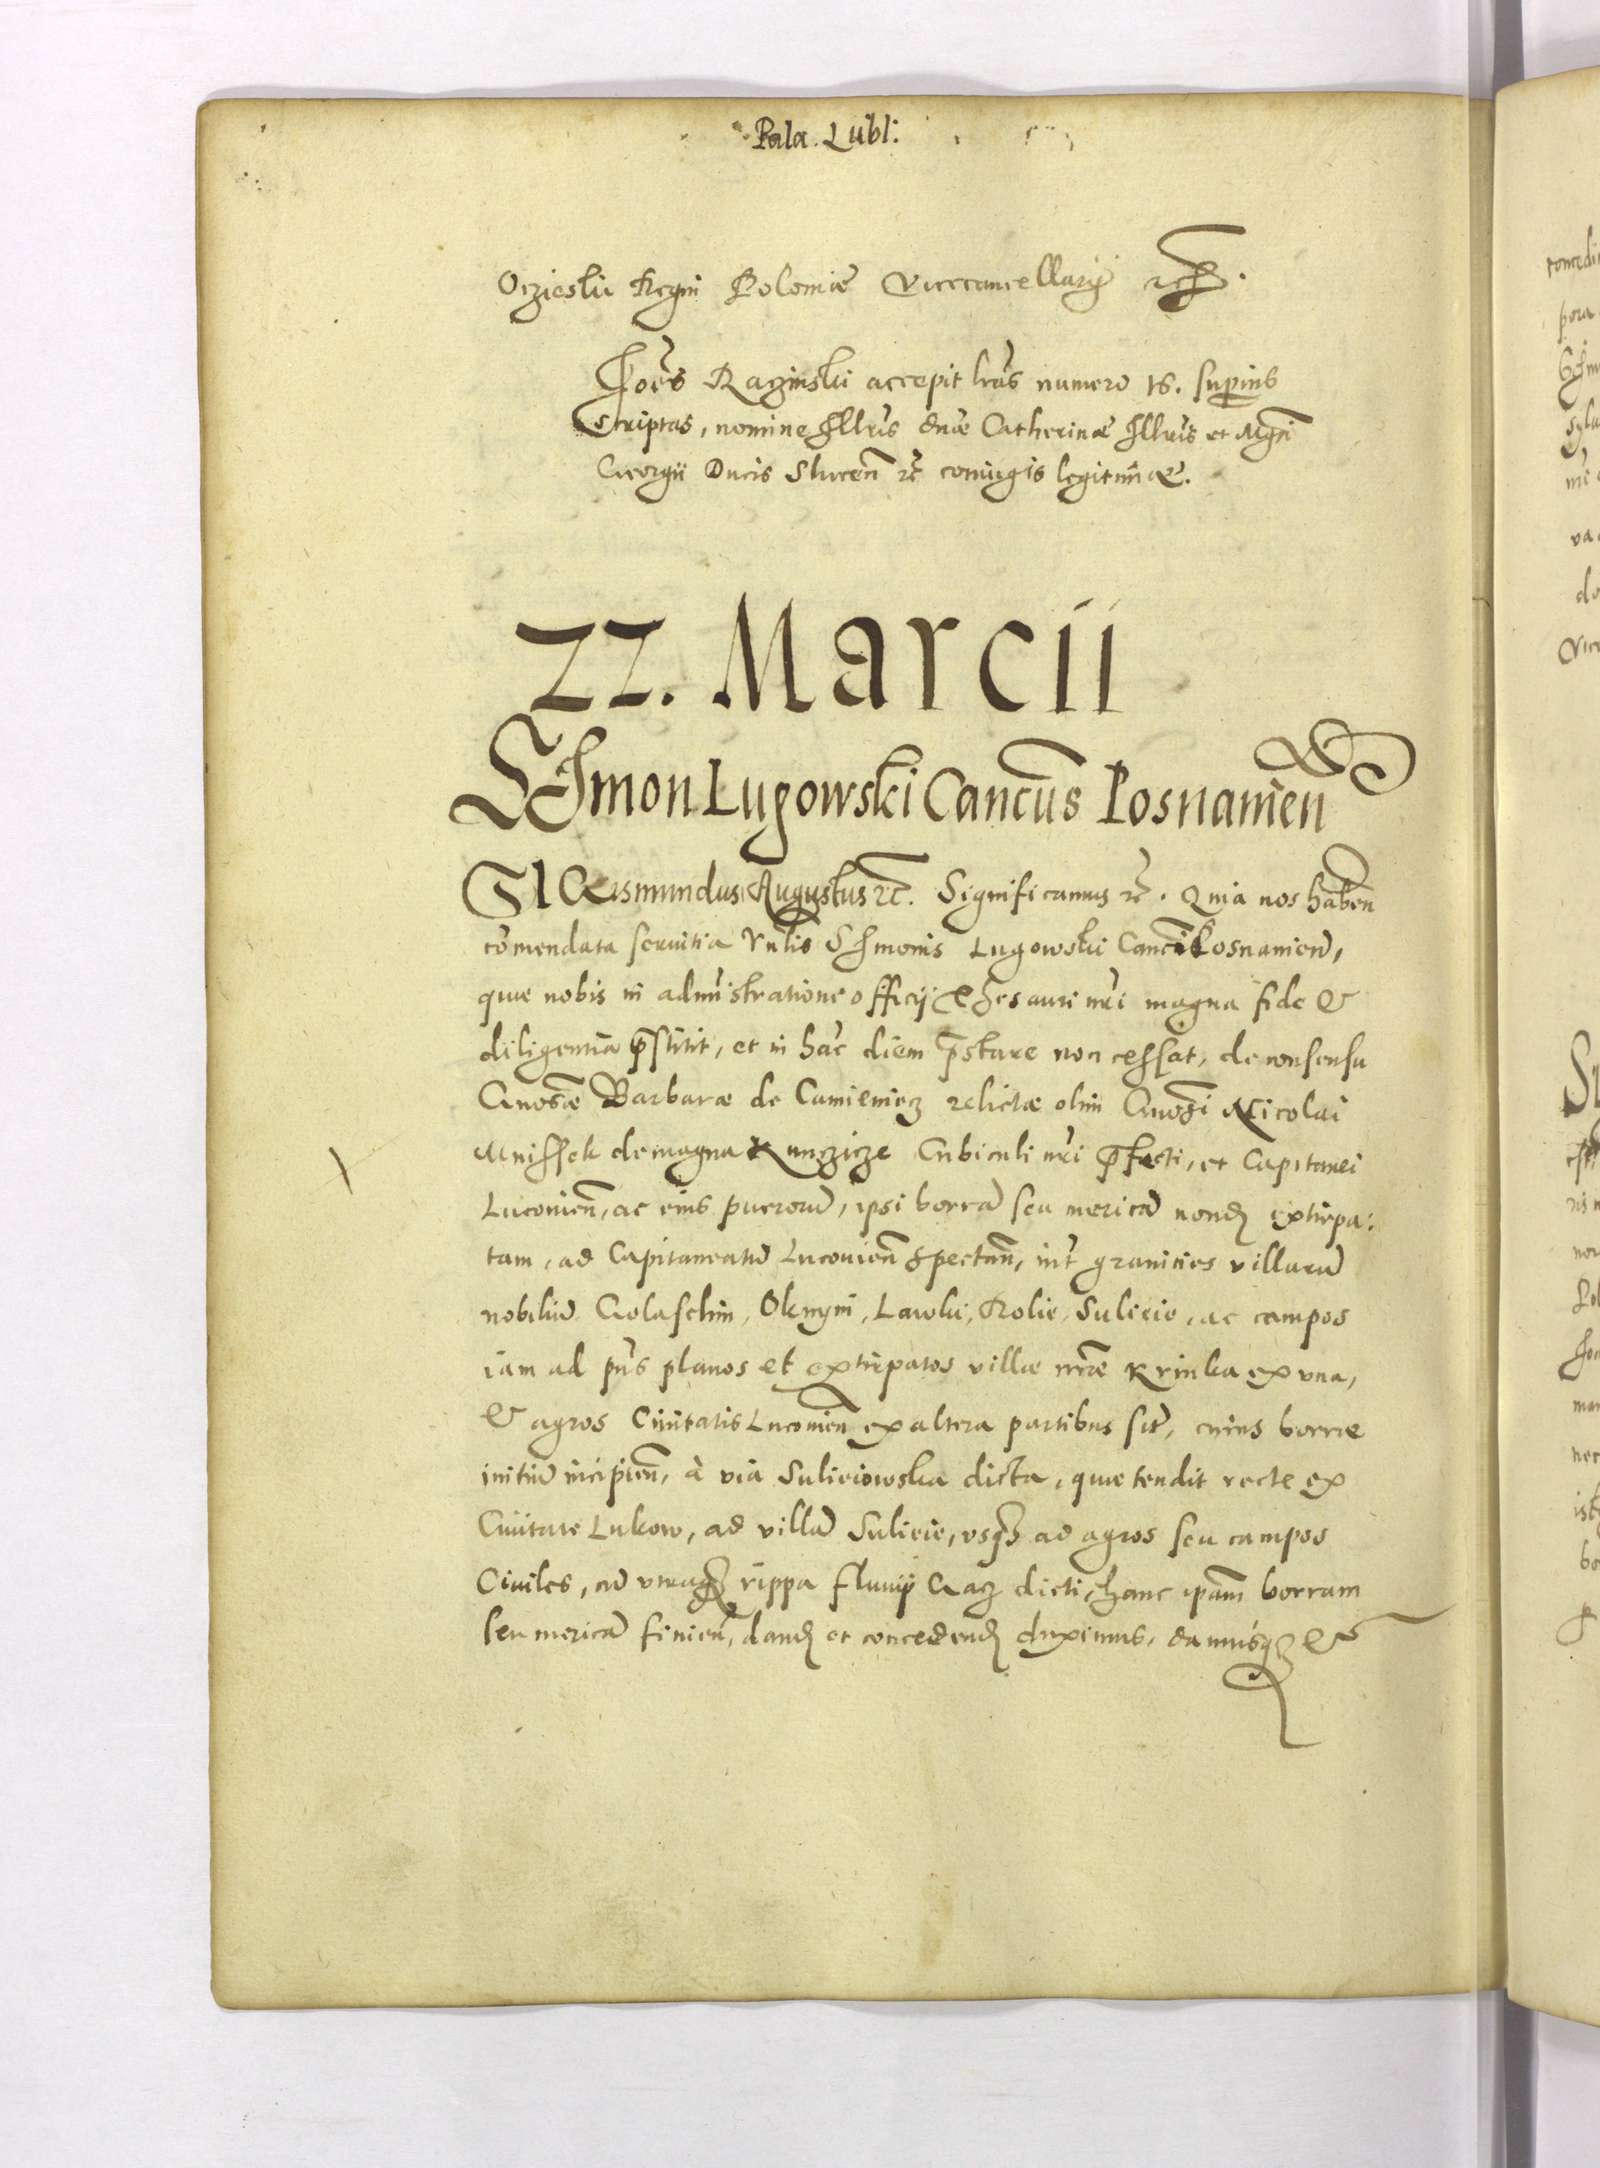 Pala. Lubl:
Oczieskii Regni Poloniæ Vicecancellarÿ etc.
Joēs Raginski accepit lrās numero 16. superius
Scriptas, nomine Illrīs dnæ Catherinæ Illrīs et Mgcī
Georgii Ducis Slucen̄ etc coniugis legitimæ.
22. Marcii
Simon Lugowski Cancūs Posnanien̄
Sigismundus Augustus etc. Significamus etc. Quia nos haben̄
com̄endata seruitia Vn̄lis Simonis Lugowski Cancī Posnanien̄,
quæ nobis in admīstratione officÿ Thesauri nr̄i magna fide et
diligentia p̄stitit, et in hāc diem p̄stare non cessat, de consensu
Gnosæ Barbaræ de Camieniecz relictæ olim Gnosi Nicolai
Mnissek de magna Kunczicze Cubiculi nr̄i p̄fecti, et Capitanei
Lucouien̄, ac eius puerorū, ipsi borrā seu mericā nondū extirpa:
tam, ad Capitaneatū Lucouien̄ spectan̄, int̄ granicies villarū
nobiliū Golaschin, Oknyni, Lawki, Rolie, Sulieie, ac campos
iam ad pn̄s planos et extirpatos villæ nr̄æ Krinka ex vna,
et agros Ciuitatis Lucouien̄ ex altera partibus sit̄, cuius borræ
initiū incipien̄, à via Sulieiowska dicta, quæ tendit recte ex
Ciuitate Lukow, ad villā Sulieie, vsq3 ad agros seu campos
Ciuiles, cū vtraq3 rippa fluuÿ Gacz dicti, hanc ip̄am borram
seu mericā finien̄, dand et concedend duximus, damusq3 et